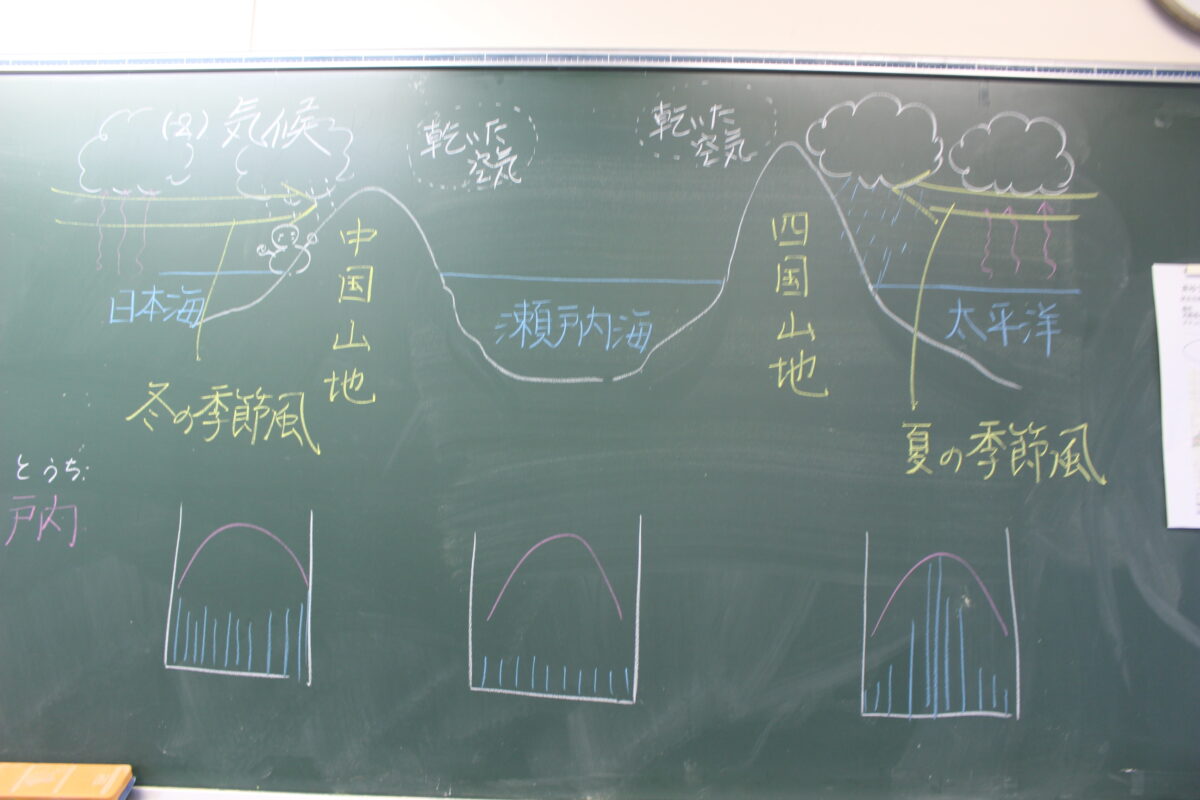 (2) 気候
乾いた
空気
乾いた
空気
中国山地
四国山地
日本海
瀬戸内海
太平洋
冬の季節風
夏の季節風
とうち
戸内